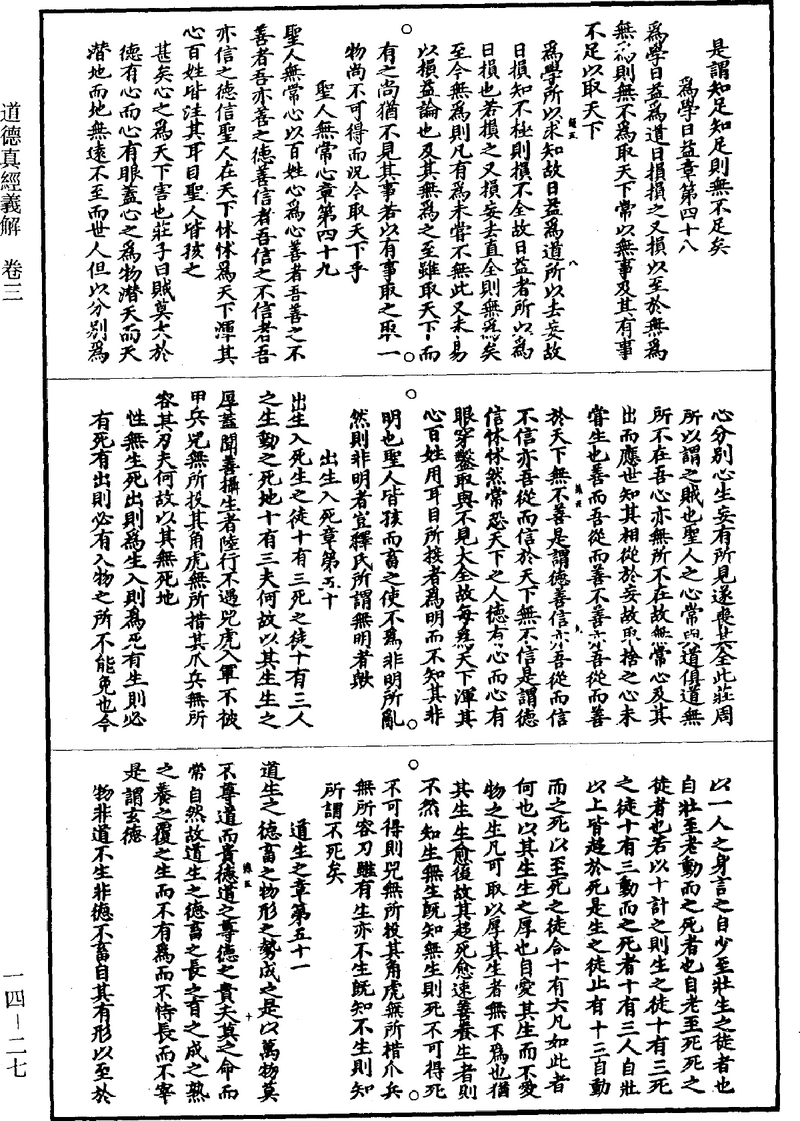 是謂知足知足則無不足矣
爲學日益章第四十八
爲學日益爲道日損損之又損以至於無爲
無爲則無不爲取天下常以無事及其有事
不足以取天下
爲學所以求知故日益爲道所以去妄故
日損知不極則損不全故日益者所以爲
日損也若損之又損妄去直全則無爲矣
至今無爲則凡有爲未嘗不無此又未易
以損益論也及其無爲之至雖取天下而
有之尚猶不見其事若以有事取之取一
物尚不可得而況今取天下乎
聖人無常心章第四十九
聖人無常心以百姓心爲心善者吾善之不
善者吾亦善之德善信者吾信之不信者吾
亦信之德信聖人在天下怵怵爲天下渾其
心百姓皆注其耳目聖人皆孩之
甚矣心之爲天下害也莊子曰賊莫大於
德有心而心有眼蓋心之爲物潛天而天
潛地而地無遠不至而世人但以分別爲
心分別心生妄有所見遂喪其全此莊周
所以謂之賊也聖人之心常與道俱道無
所不在吾心亦無所不在故無常心及其
出而應世知其相從於妄故取捨之心未
嘗生也善而吾從而善不善亦吾從而善
於天下無不善是謂德善信亦吾從而信
不信亦吾從而信於天下無不信是謂德
信怵怵然常恐天下之人德有心而心有
眼穿鑿取與不見大全故每爲天下渾其
心百姓用耳目所接者爲明而不知其非
明也聖人皆孩而畜之使不爲非明所亂
然則非明者豈釋氏所謂無明者歟
出生入死章第五十
出生入死生之徒十有三死之徒十有三人
之生動之死地十有三夫何故以其生生之
厚蓋聞善攝生者陸行不遇兕虎入軍不被
甲兵兕無所投其角虎無所措其爪兵無所
容其刃夫何故以其無死地
性無生死出則爲生入則爲死有生則必
有死有出則必有入物之所不能免也今
以一人之身言之自少至壯生之徒者也
自壯至老動而之死者也自老至死死之
徒者也若以十計之則生之徒十有三死
之徒十有三動而之死者十有三人自壯
以上皆趍於死是生之徒止有十三自動
而之死以至死之徒合十有六凡如此者
何也以其生生之厚也自愛其生而不愛
物之生凡可取以厚其生者無不爲也猶
其生生愈復故其趍死愈速善養生者則
不然知生無生既知無生則死不可得死
不可得則兕無所投其角虎無所措爪兵
無所容刀雖有生亦不生既知不生則知
所謂不死矣
道生之章第五十一
道生之德畜之物形之勢成之是以萬物莫
不尊道而貴德道之尊德之貴夫莫之命而
常自然故道生之德畜之長之育之成之熟
之養之覆之生而不有爲而不恃長而不宰
是謂玄德
物非道不生非德不畜自其有形以至於
道德真經義解 卷三
一四－二七